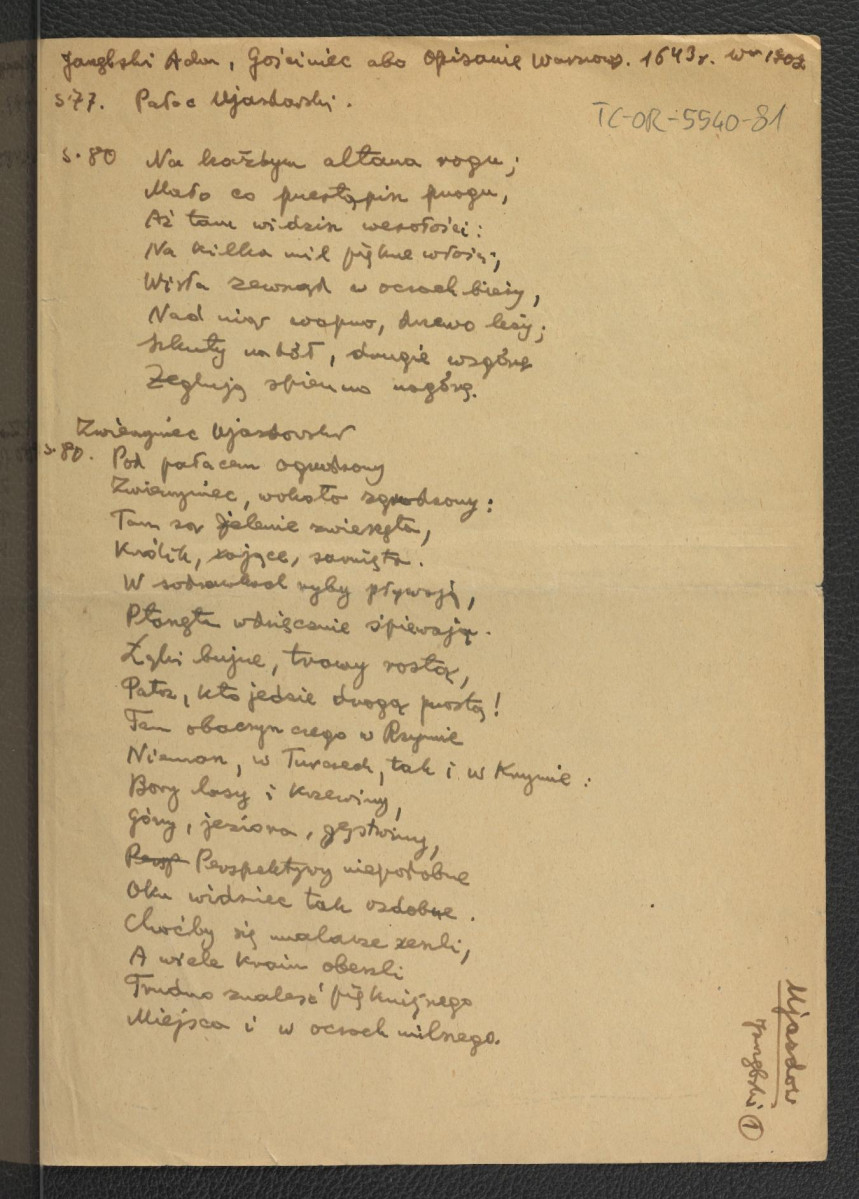 Jarzębski Adam, Gościniec abo Opisanie Warszawy. 1643 r. W-wa 1909
s. 77. Pałac Ujazdowski.
TC-OR-5540-81
s. 80 Na każdym altana rogu;
Mało co przestąpisz progu,
Aż tam widzisz wesołości:
Na kilka mil piękne włości;
Wisła zewsząd w oczach bieży,
Nad nią wapno, drzewo leży;
Szkuty na dół, drugie wzgórę
Żeglują spieszno nagórę.
Zwierzyniec Ujazdowski
s. 80. Pod pałacem ogrodzony
Zwierzyniec, wokoło zgrodzony:
Tam są jelenie zwierzęta,
Królik, zające, sarnięta.
W sadzawkach ryby pływają,
Ptaszęta wdzięcznie śpiewają.
Łąki bujne, trawy rostą,
Patrz, kto jedzie drogą prostą!
Tam obaczysz czego w Rzymie
Niemasz, w Turczech, tak i w Krymie:
Bory lasy i krzewiny,
Góry, jeziora, gęstwiny,
Persp Perspektywy niepodobne
Oku widzieć tak ozdobne.
Choćby się malarze zeszli,
A wiele krain obeszli
Trudno znaleść piękniejnego
Miejsca i w oczach milszego.
Ujazdów
Jarzębski 1